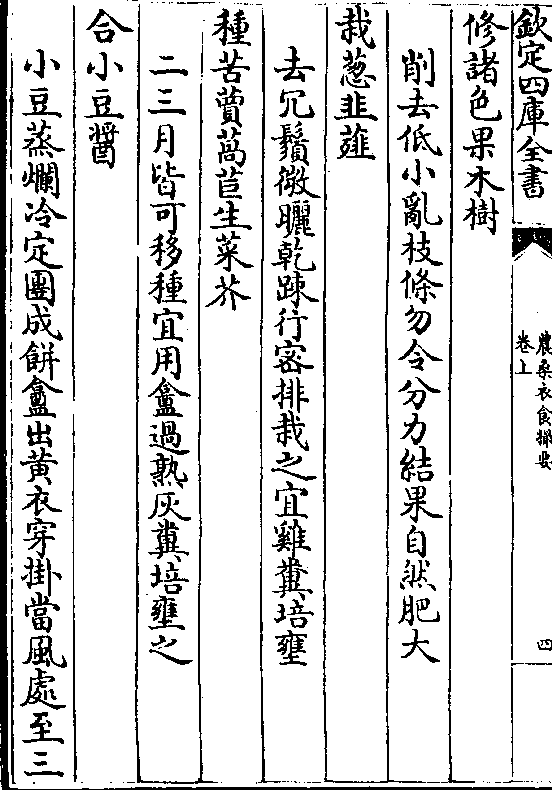 欽定四庫全書
農桑衣食撮要
卷上
四
修諸色果木樹
削去低小亂枝條勿令分力結果自然肥大
栽葱韭薤
去冗鬚微曬乾踈行宻排栽之宜雞糞培壅
種苦蕒萵苣生菜芥
二三月皆可移種宜用盦過熟灰糞培壅之
合小豆醤
小豆蒸爛冷定團成餅盦出黄衣穿掛當風處至三